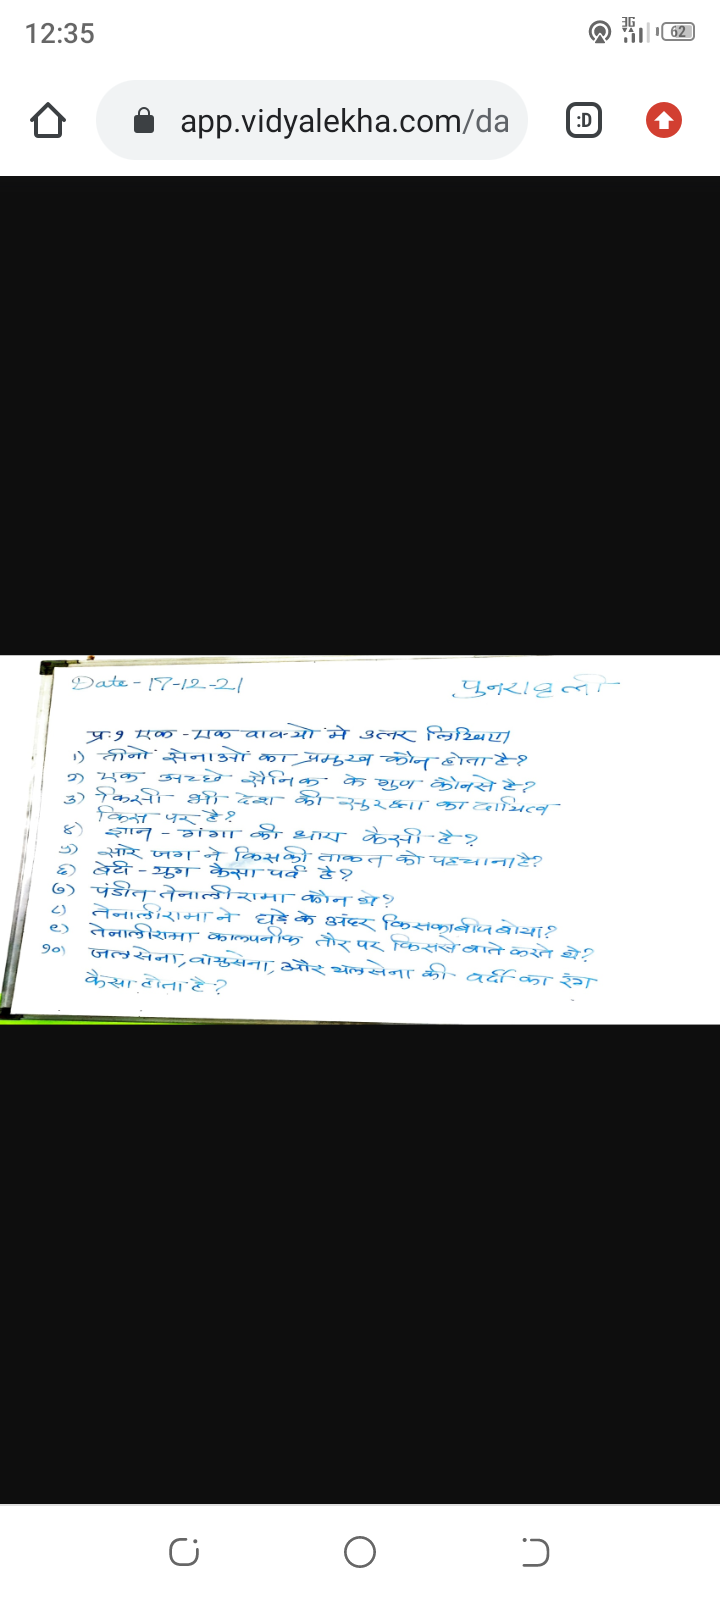 12:35
3G
62
app.vidyalekha.com/da
:D
Date-17-12-21
पुनरावृत्ती
प्र.१ एक-एक वाक्यों मे उत्तर लिखिए।
१) तीनों सेनाओं का प्रमुख कौन होता है?
२) एक अच्छे सैनिक के गुण कौनसे है?
३) किसी भी देश की सुरक्षा का दायित्व
किस पर है?
४) ज्ञान-गंगा की धारा कैसी है?
५) सारे जग ने किसकी ताकत को पहचाना है?
६) बेटी-युग कैसा पर्व है?
७) पंडीत तेनालीरामा कौन थे?
८) तेनालीरामा ने घड़े के अंदर किसका बीज बोया?
९) तेनालीरामा काल्पनीक तौर पर किससे बाते करते थे?
१०) जलसेना, वायुसेना, और थलसेना की वर्दी का रंग
कैसा होता है?